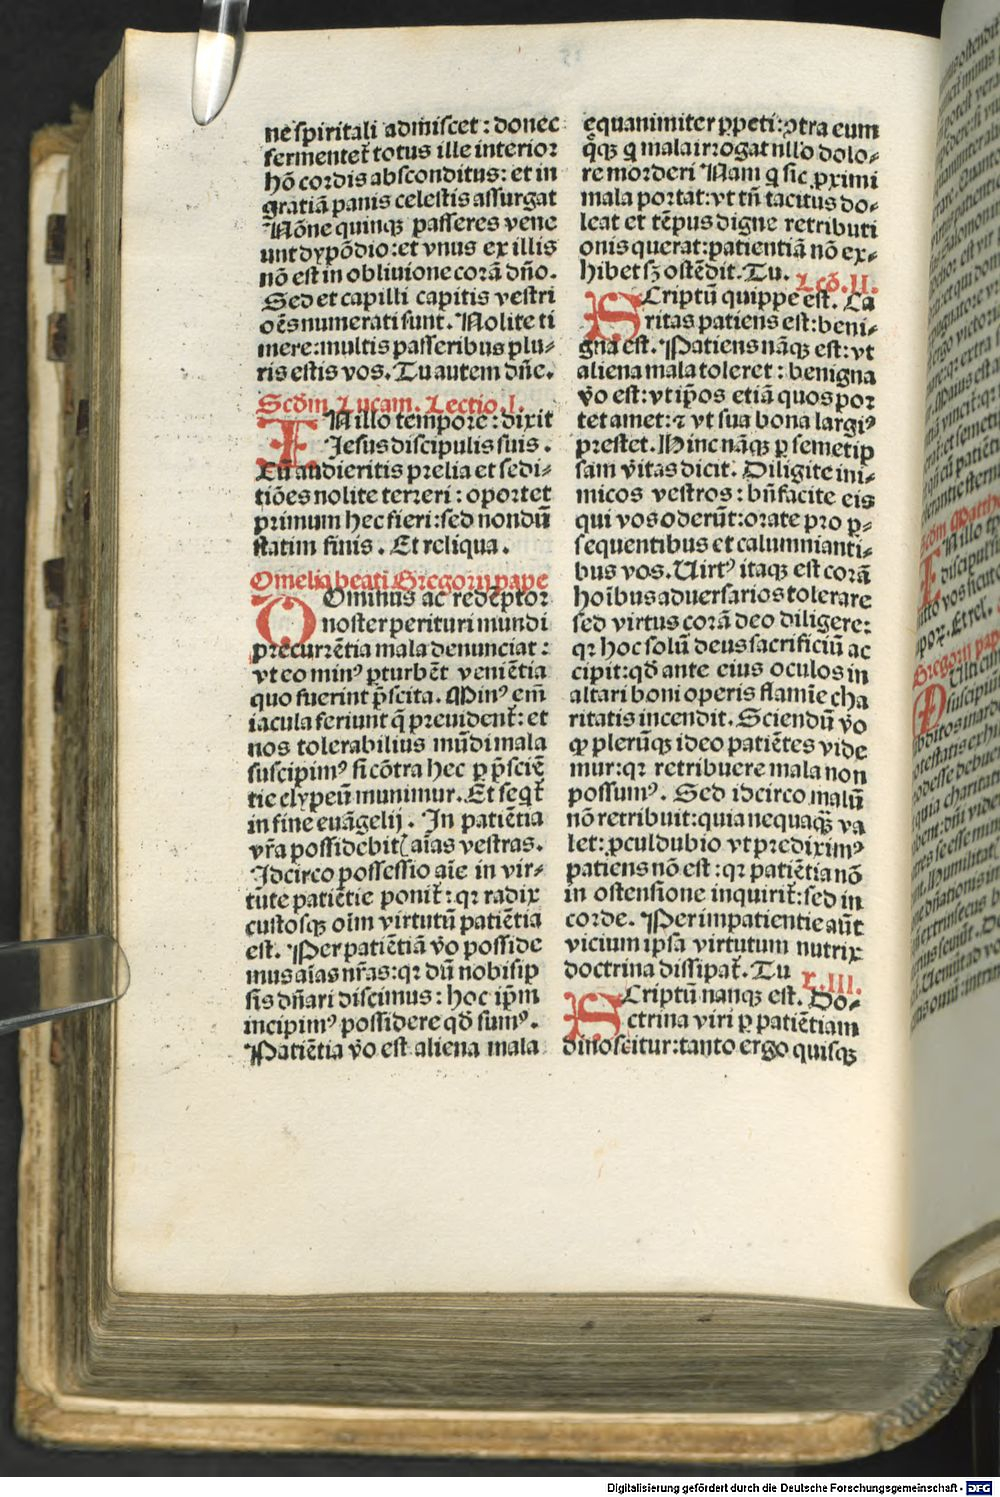 ne spiritali admiscet: donec
fermentet̃ totus ille interior
hõ cordis absconditus: et in
gratiã panis celestis assurgat
Nõne quinqꝫ passeres vene
unt dypõdio: et vnus ex illis
nõ est in obliuione corã dño.
Sed et capilli capitis vestri
oẽs numerati sunt. Nolite ti
mere: multis passeribus plu⸗
ris estis vos. Tu autem dñe.
Scd̃m Lucam. Lectio. I.
IN illo tempore: dixit
Jesus discipulis suis.
Cũ audieritis prelia et sedi⸗
tiões nolite terreri: oportet
primum hec fieri: sed nondũ
statim finis. Et reliqua.
Omelia beati Gregorij pape
DOminus ac redẽptor
noster perituri mundi
precurrẽtia mala denunciat:
vt eo minꝰ ꝑturbẽt veniẽtia
quo fuerint p̃scita. Minꝰ em̃
iacula feriunt q̃ preuident̃: et
nos tolerabilius mũdi mala
suscipimꝰ si cõtra hec ꝑ p̃sciẽ
tie clypeũ munimur. Et seqt̃
in fine euãgelij. In patiẽtia
vr̃a possidebit̃ aĩas vestras.
Idcirco possessio aĩe in vir⸗
tute patiẽtie ponit̃: qꝛ radix
custosqꝫ oĩm virtutũ patiẽtia
est. Per patiẽtiã v̊o posside
mus aĩas nr̃as: qꝛ dũ nobisip
sis dñari discimus: hoc ip̃m
incipimꝰ possidere qd̃ sumꝰ.
Patiẽtia v̊o est aliena mala
equanimiter ꝑpeti: ꝯtra eum
q̊qꝫ q mala irrogat nllo dolo⸗
re morderi Nam q sic ꝓximi
mala portat: vt tñ tacitus do⸗
leat et tẽpus digne retributi
onis querat: patientiã nõ ex⸗
hibet sꝫ ostẽdit. Tu.
Lcõ. II.
SCriptũ quippe est. Ca
ritas patiens est: beni⸗
gna est. Patiens nãqꝫ est: vt
aliena mala toleret: benigna
v̊o est: vt ip̃os etiã quos por
tet amet: ⁊ vt sua bona largiꝰ
prestet. Hinc nãqꝫ ꝑ semetip
sam v̊itas dicit. Diligite ini⸗
micos vestros: bñfacite eis
qui vos oderũt: orate pro ꝑ⸗
sequentibus et calumnianti⸗
bus vos. Uirtꝰ itaqꝫ est corã
hoĩbus aduersarios tolerare
sed virtus corã deo diligere:
qꝛ hoc solũ deus sacrificiũ ac
cipit: qd̃ ante eius oculos in
altari boni operis flam̃e cha
ritatis incendit. Sciendũ v̊o
ꝙ plerũqꝫ ideo patiẽtes vide
mur: qꝛ retribuere mala non
possumꝰ. Sed idcirco malũ
nõ retribuit: quia nequaqꝫ va
let: ꝓculdubio vt predirimꝰ
patiens nõ est: qꝛ patiẽtia nõ
in ostensione inquirit̃: sed in
corde. Per impatientie aũt
vicium ipsa virtutum nutrix
doctrina dissipat̃. Tu
L. III.
SCriptũ nanqꝫ est. Do⸗
ctrina viri ꝑ patiẽtiam
dinoscitur: tanto ergo quisqꝫ
Digitalisierung gefördert durch die Deutsche Forschungsgemeinschaft - DFG